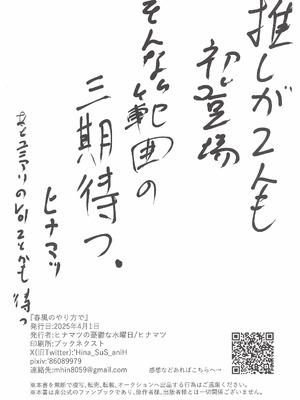 推しが2人も
初登場
そんな範囲の
三期待つ。
ヒナマツ
『春風のやり方で』
発行日:2025年4月1日
発行者:ヒナマツの憂鬱な水曜日/ヒナマツ
印刷所:ブックネクスト
X(旧Twitter):'Hina_SuS_aniH
pixiv:'86089979
連絡先:mhin8059@gmail.com
感想などあればこちらへ→
※本書を無断で複写、転売、転載、オークションへ出品する行為はご遠慮ください。
※本書は非公式のファンブックであり、原作者様、出版者様とは一切関係ございません。